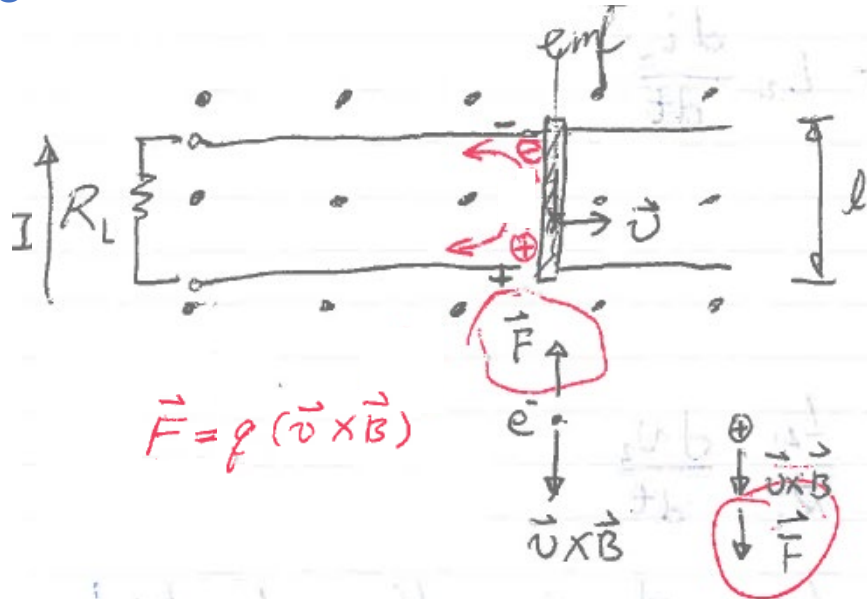 emf
-
⊖
I
R_L
l
\vec{v}
⊕
+
\vec{F}
\vec{F} = q(\vec{v} × \vec{B})
e^-
⊕
\vec{v} × \vec{B}
\vec{v} × \vec{B}
\vec{F}